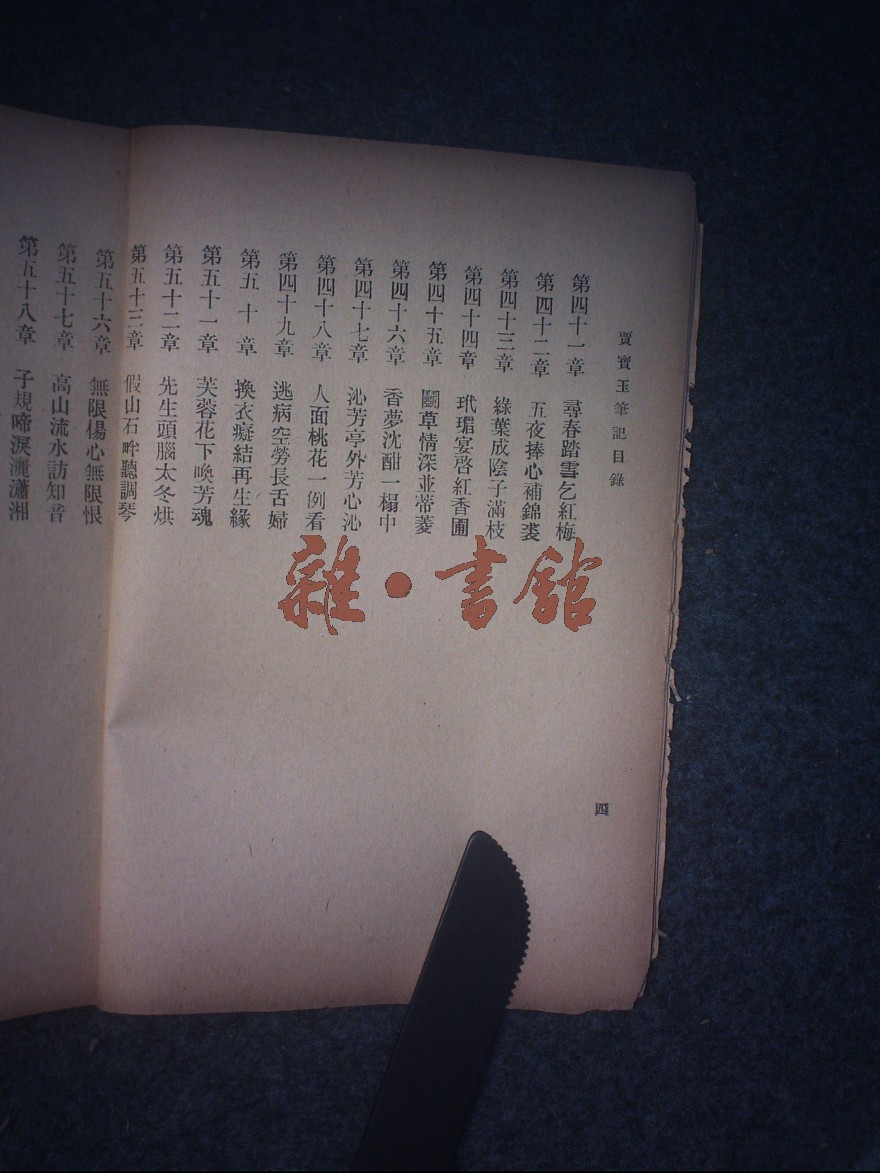 賈寶玉筆記目錄
第四十一章 尋春踏雪乞紅梅
第四十二章 五夜捧心補錦裘
第四十三章 綠葉成陰子滿枝
第四十四章 玳瑁宴啓紅香圃
第四十五章 鬬草情深並蒂菱
第四十六章 香夢沈酣一榻中
第四十七章 沁芳亭外芳心沁
第四十八章 人面桃花一例看
第四十九章 逃病空勞長舌婦
第五十章 換衣癡結再生緣
第五十一章 芙蓉花下喚芳魂
第五十二章 先生頭腦太冬烘
第五十三章 假山石畔聽調琴
第五十六章 無限傷心無限恨
第五十七章 高山流水訪知音
第五十八章 子規啼淚灑瀟湘
四
雜·書館